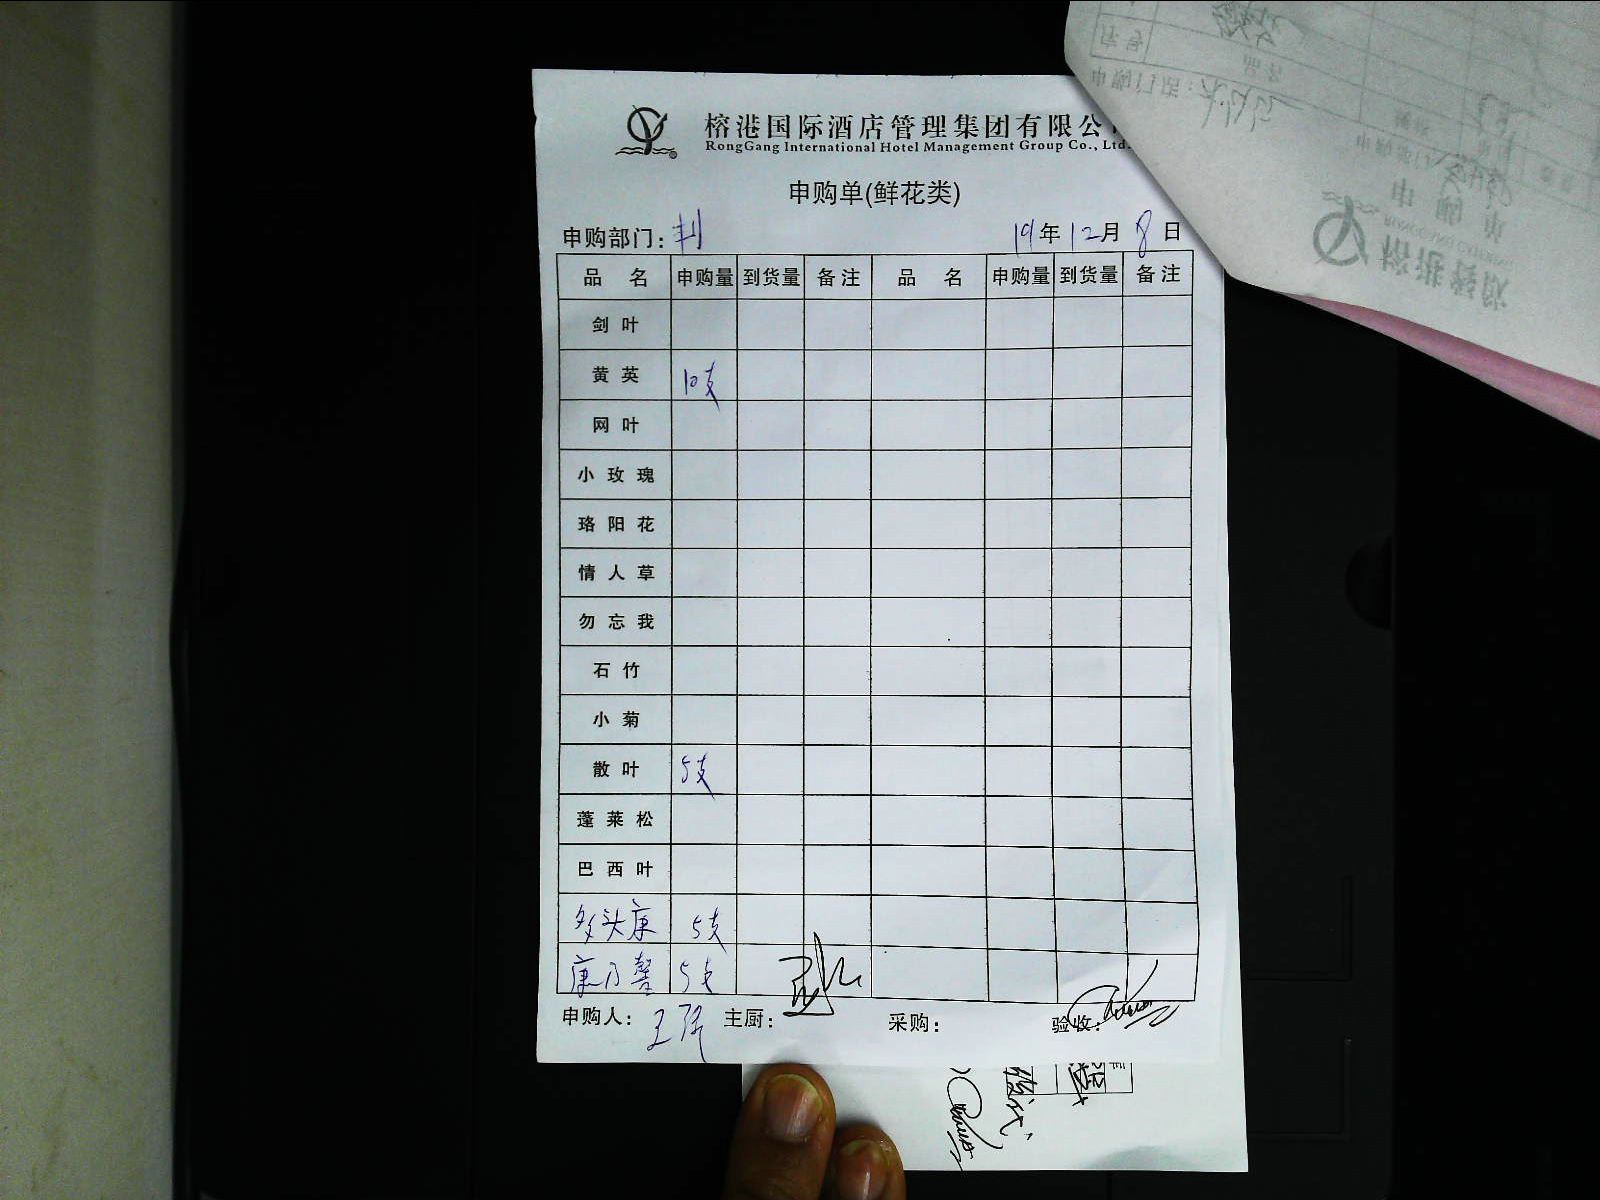 榕港国际酒店管理集团有限公
RongGang International Hotel Management Group Co., Ltd.
申购单(鲜花类)
申购部门: 19年12月8日
品名 申购量 到货量 备注 品名 申购量 到货量 备注
剑叶
黄英 10支
网叶
小玫瑰
珞阳花
情人草
勿忘我
石竹
小菊
散叶 5支
蓬莱松
巴西叶
多头康 5支
康乃馨 5支
申购人: 主厨: 采购: 验收: